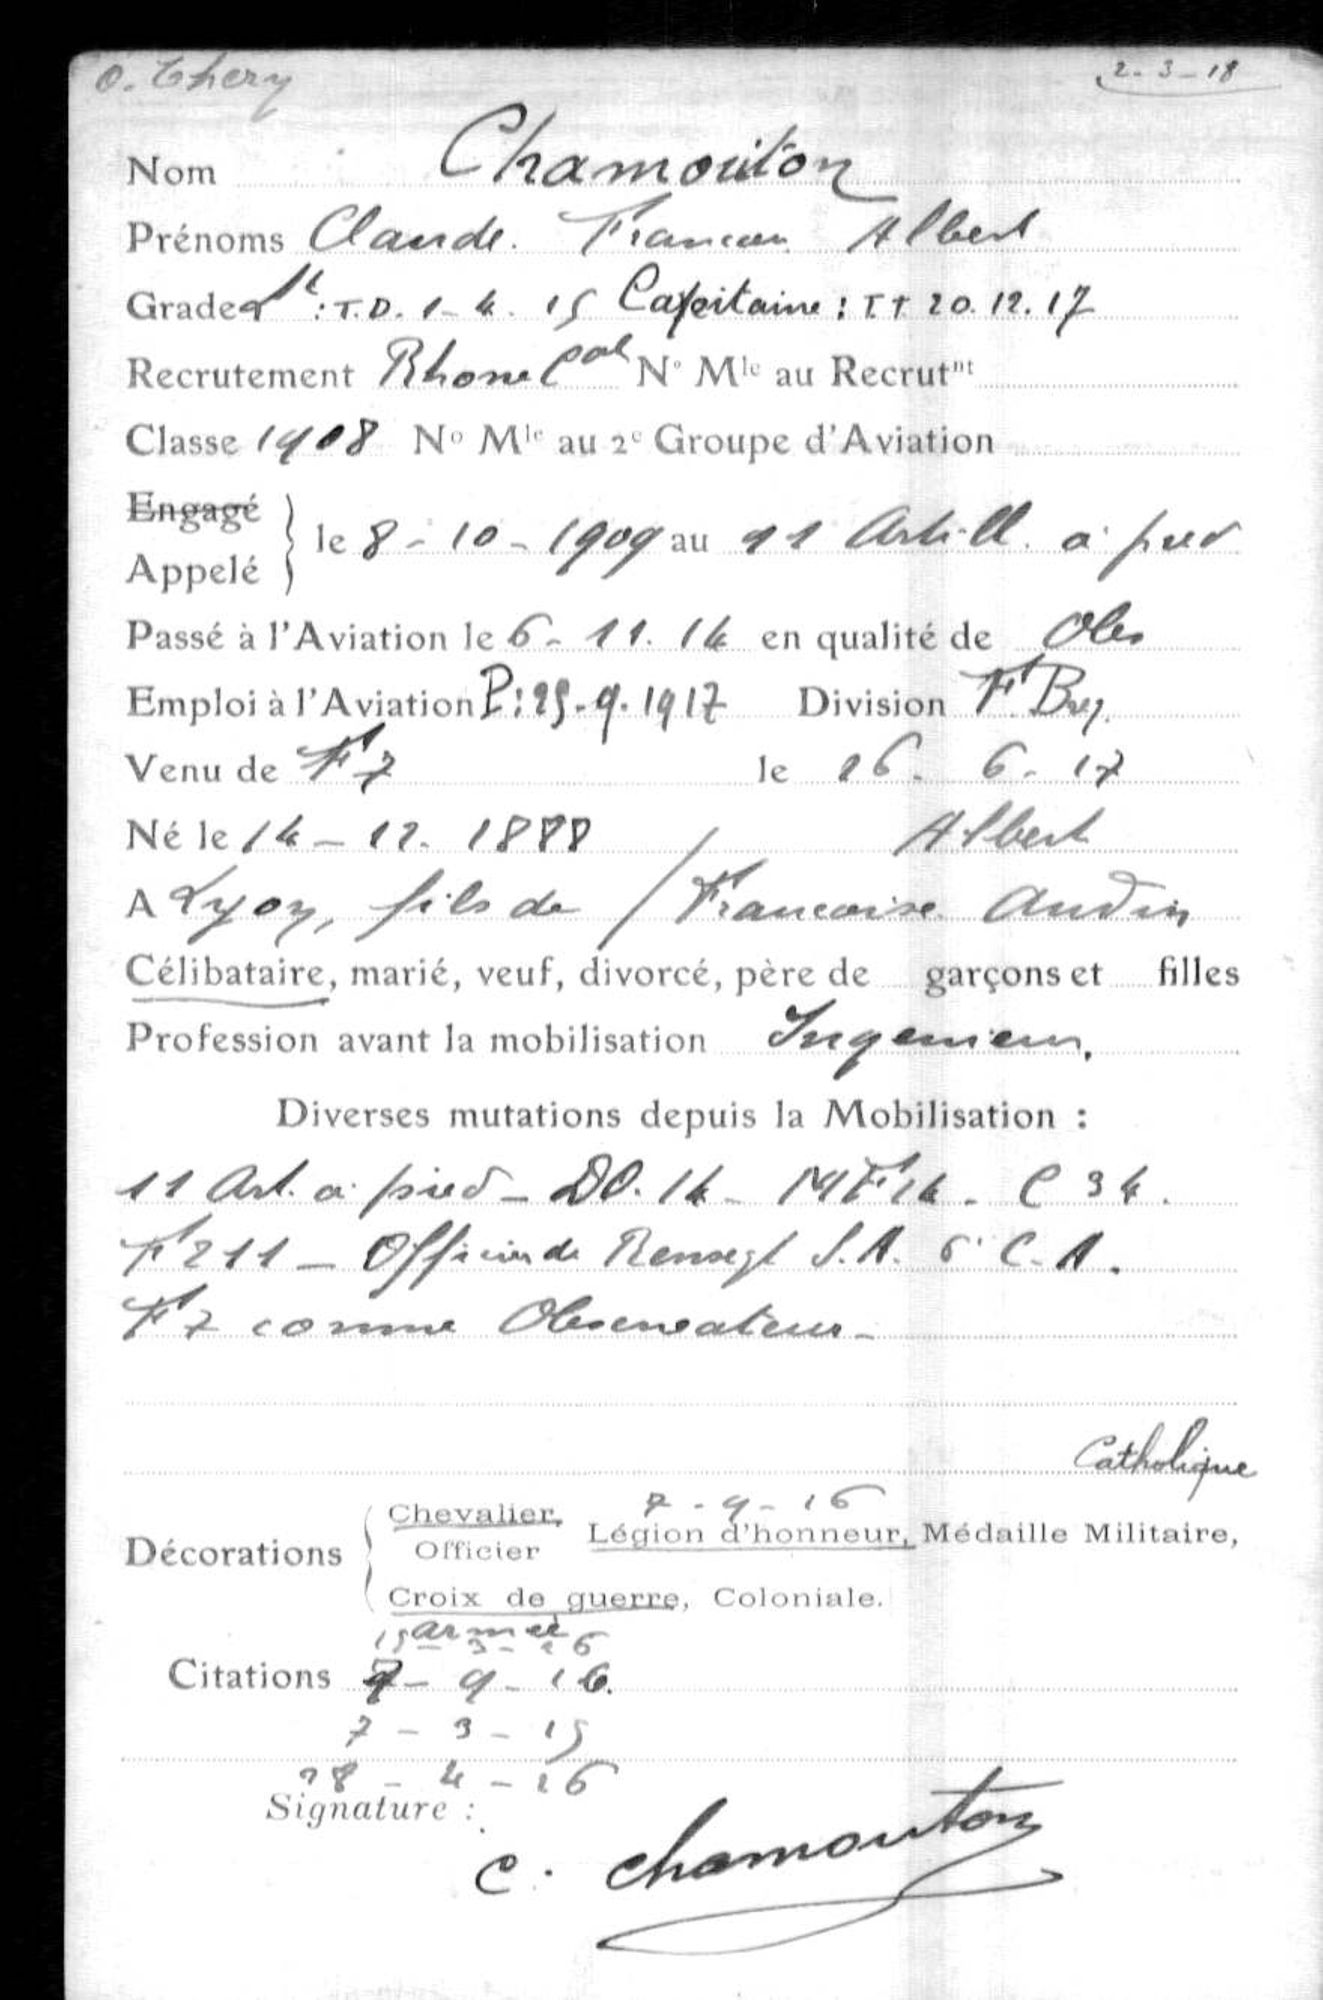 O. Thery 2-3-18
Nom Chamouton
Prénoms Claude. Francois Albert
Grade Lt : T.D. 1-4. 15 Capitaine : TT 20.12.17
Recrutement Rhone Cal No Mle au Recrutnt
Classe 1908 No Mle au 2e Groupe d'Aviation
Engagé
Appelé } le 8-10-1909 au 11 Artill. à pied
Passé à l'Aviation le 6-11.14 en qualité de Obs
Emploi à l'Aviation P: 25.9.1917 Division F Breg.
Venu de F 7 le 26. 6. 17
Né le 14-12. 1888 / Albert
A Lyon, fils de / Francoise Audin
Célibataire, marié, veuf, divorcé, père de garçons et filles
Profession avant la mobilisation Ingenieur,
Diverses mutations depuis la Mobilisation :
11 Art. à pied - DO. 14 - MF 14 - C 34.
F 211 - Officier de Rensegt S.A. 6e C.A.
F 7 comme Observateur -
Catholique
7-9-16
Décorations { Chevalier, Officier Légion d'honneur, Médaille Militaire,
Croix de guerre, Coloniale.
armee
15-3-16
Citations 7-9-16.
7-3-15
28-4-16
Signature :
C. Chamouton